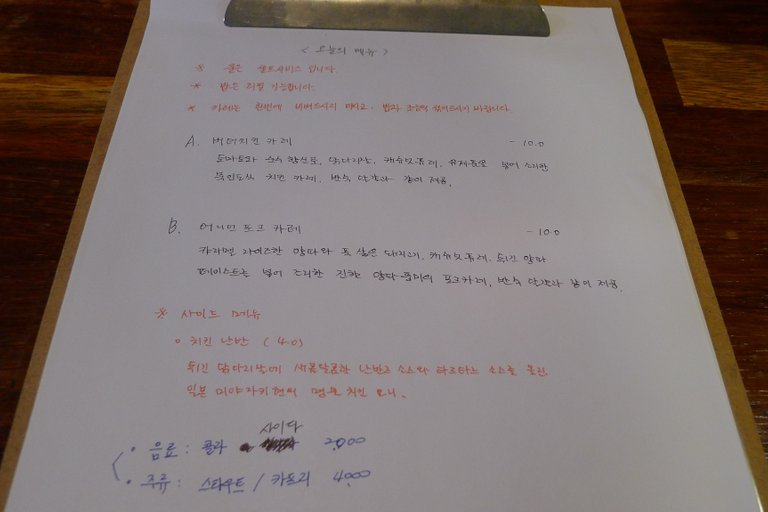 < 오늘의 메뉴 >
※ 물은 셀프서비스 입니다.
※ 밥은 리필 가능합니다.
※ 카레는 한번에 비벼드시지 마시고, 밥과 조금씩 떠드시기 바랍니다.
A. 버터치킨 카레 - 10.0
토마토와 향신료, 닭다리살, 캐슈넛퓨레, 유제품을 넣어 조리한
북인도식 치킨 카레, 반숙 계란과 같이 제공.
B. 어니언 포크 카레 - 10.0
카라멜 라이즈한 양파와 푹 삶은 돼지고기, 캐슈넛퓨레, 튀긴 양파
페이스트를 넣어 조리한 진한 양파 풍미의 포크카레, 반숙 계란과 같이 제공.
※ 사이드 메뉴
○ 치킨 난반 (4.0)
튀긴 닭다리살에 새콤달콤한 난반즈 소스와 타르타르 소스를 올린,
일본 미야자키현의 명물 치킨 요리.
사이다
· 음료 : 콜라 2,000
· 주류 : 스타우트 / 카프리 4,000